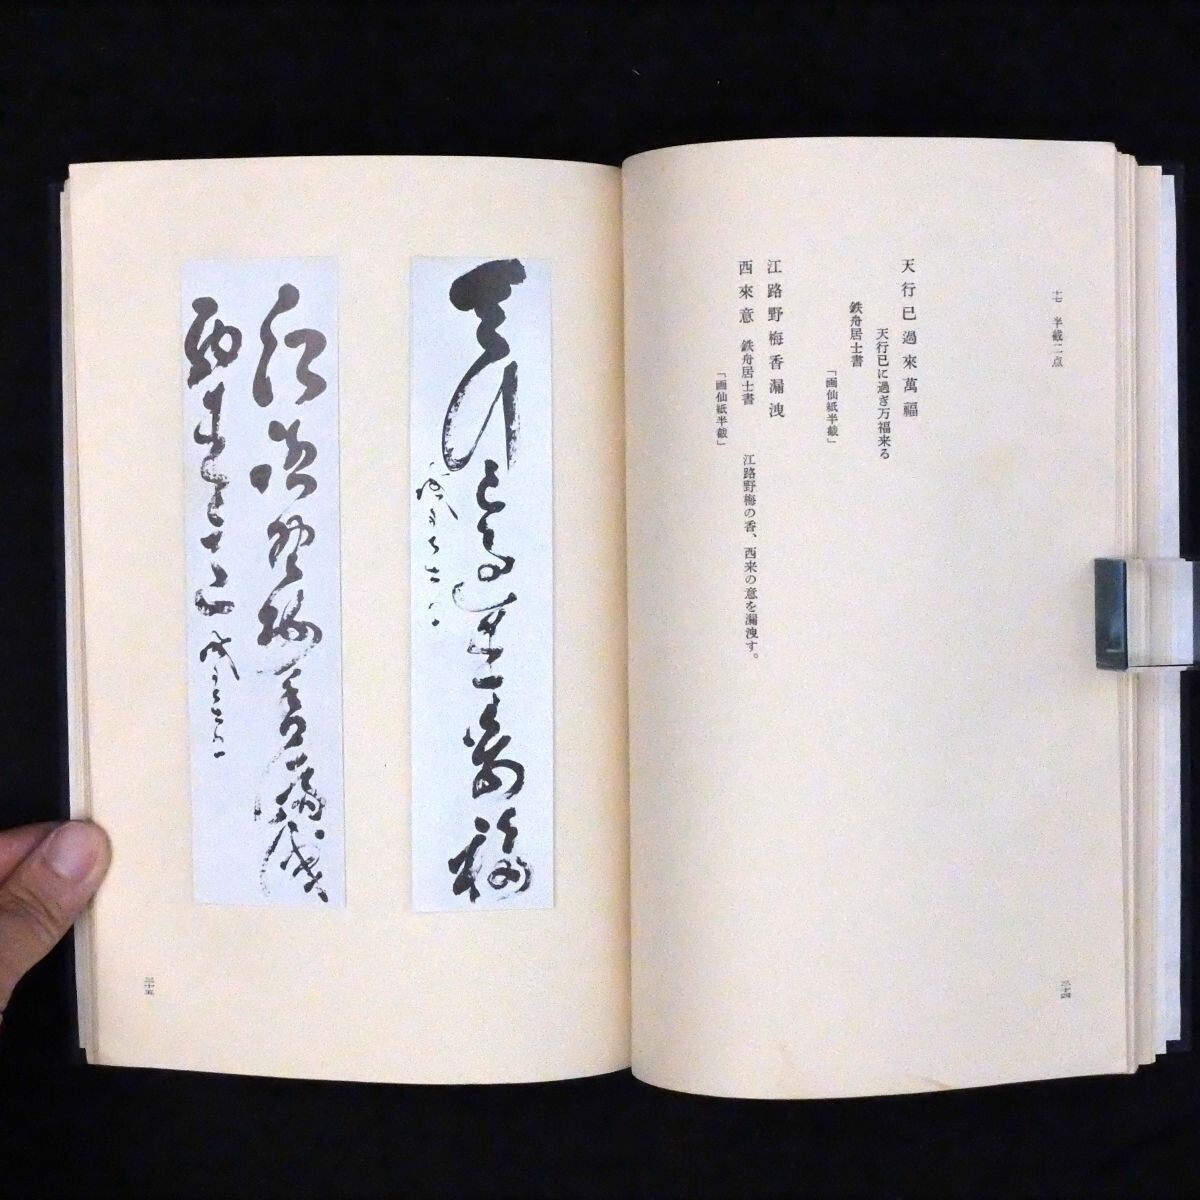 十七 半截二点
天行已過來萬福
天行已に過ぎ万福来る
鉄舟居士書
「画仙紙半截」
江路野梅香漏洩
西來意 鉄舟居士書 江路野梅の香、西来の意を漏洩す。
「画仙紙半截」
三十四
天行已過来萬福
江路野梅香漏洩
西来意
三十五